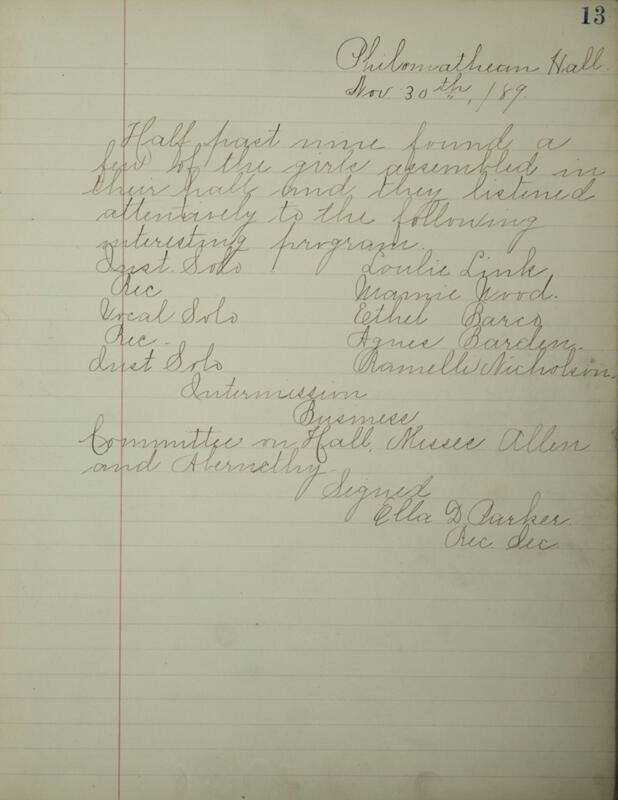 13
Philomathean Hall.
Nov 30th, /89.
Half past nine found a
few of the girls assembled in
their hall and they listened
attentively to the following
interesting program.
Inst. Solo Loulie Link
Rec Mamie Wood.
Vocal Solo Ethel Barco
Rec. Agnes Barden.
Inst Solo Ramelle Nicholson.
Intermission
Business
Committee on Hall, Misses Allen
and Abernethy.
Signed
Ella D. Parker
Rec. Sec.